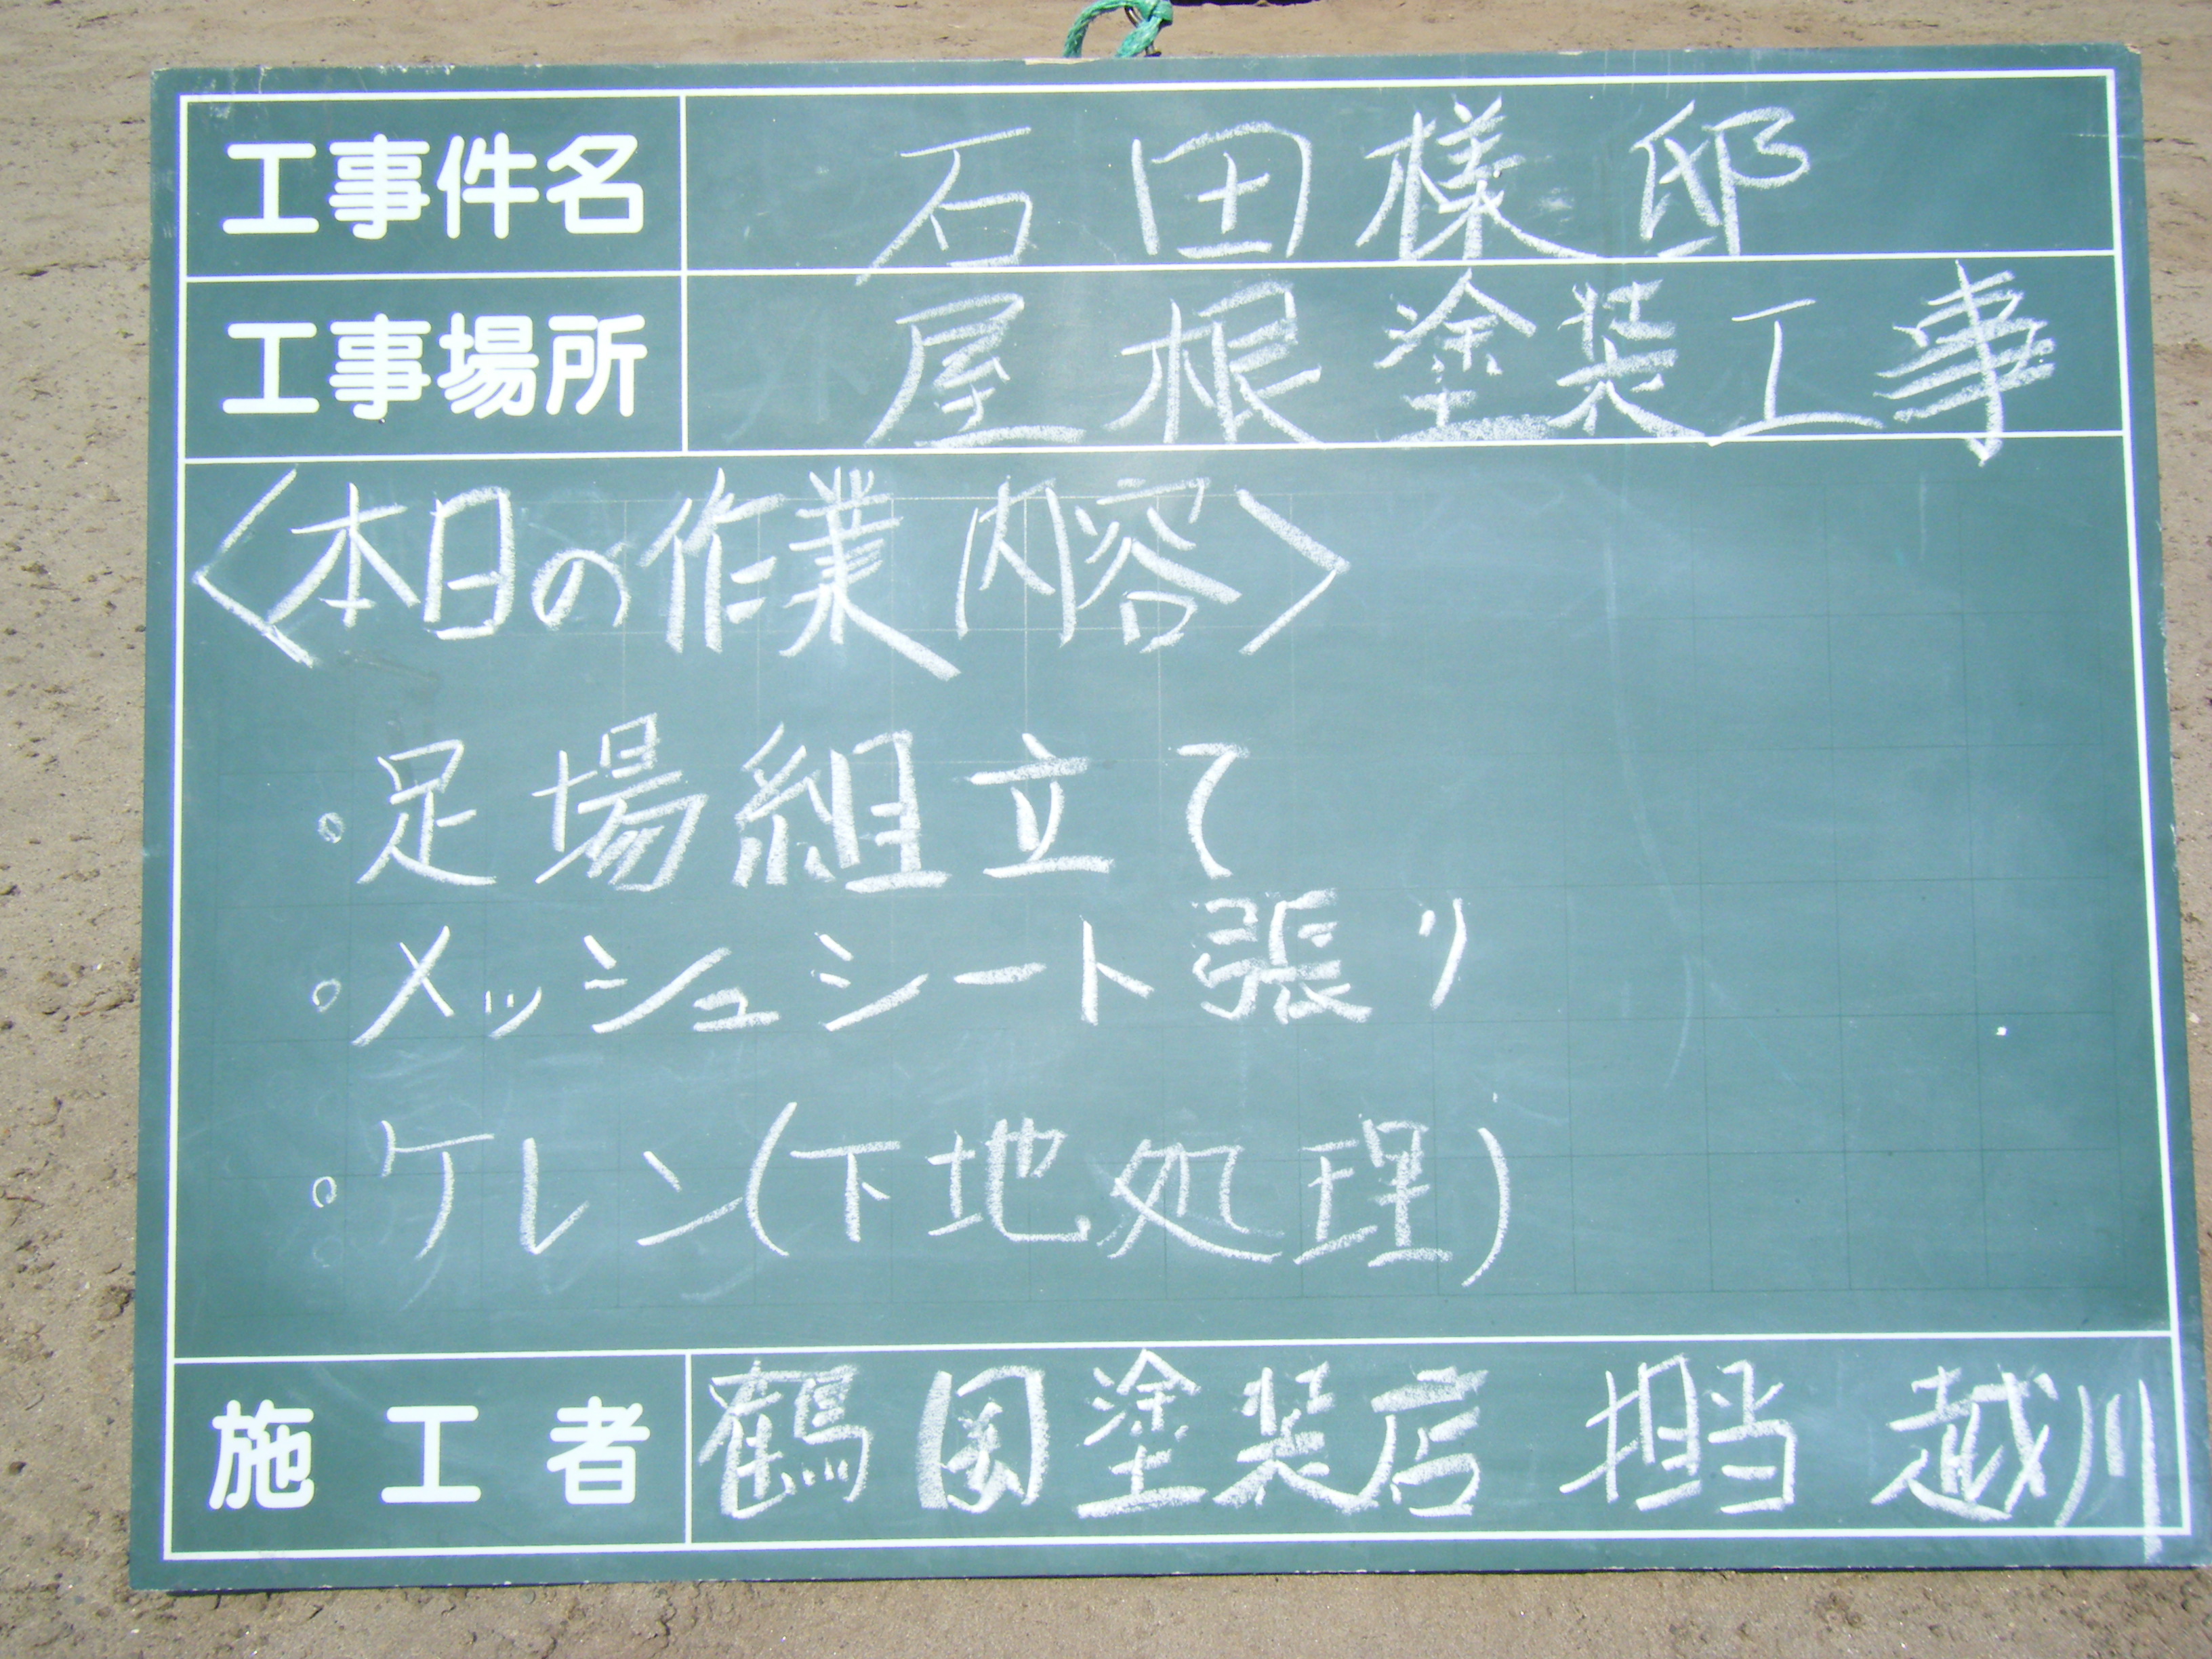 工事件名 石田様邸
工事場所 屋根塗装工事
〈本日の作業内容〉
。足場組立て
。メッシュシート張り
。ケレン(下地処理)
施工者 鶴岡塗装店 担当 越川